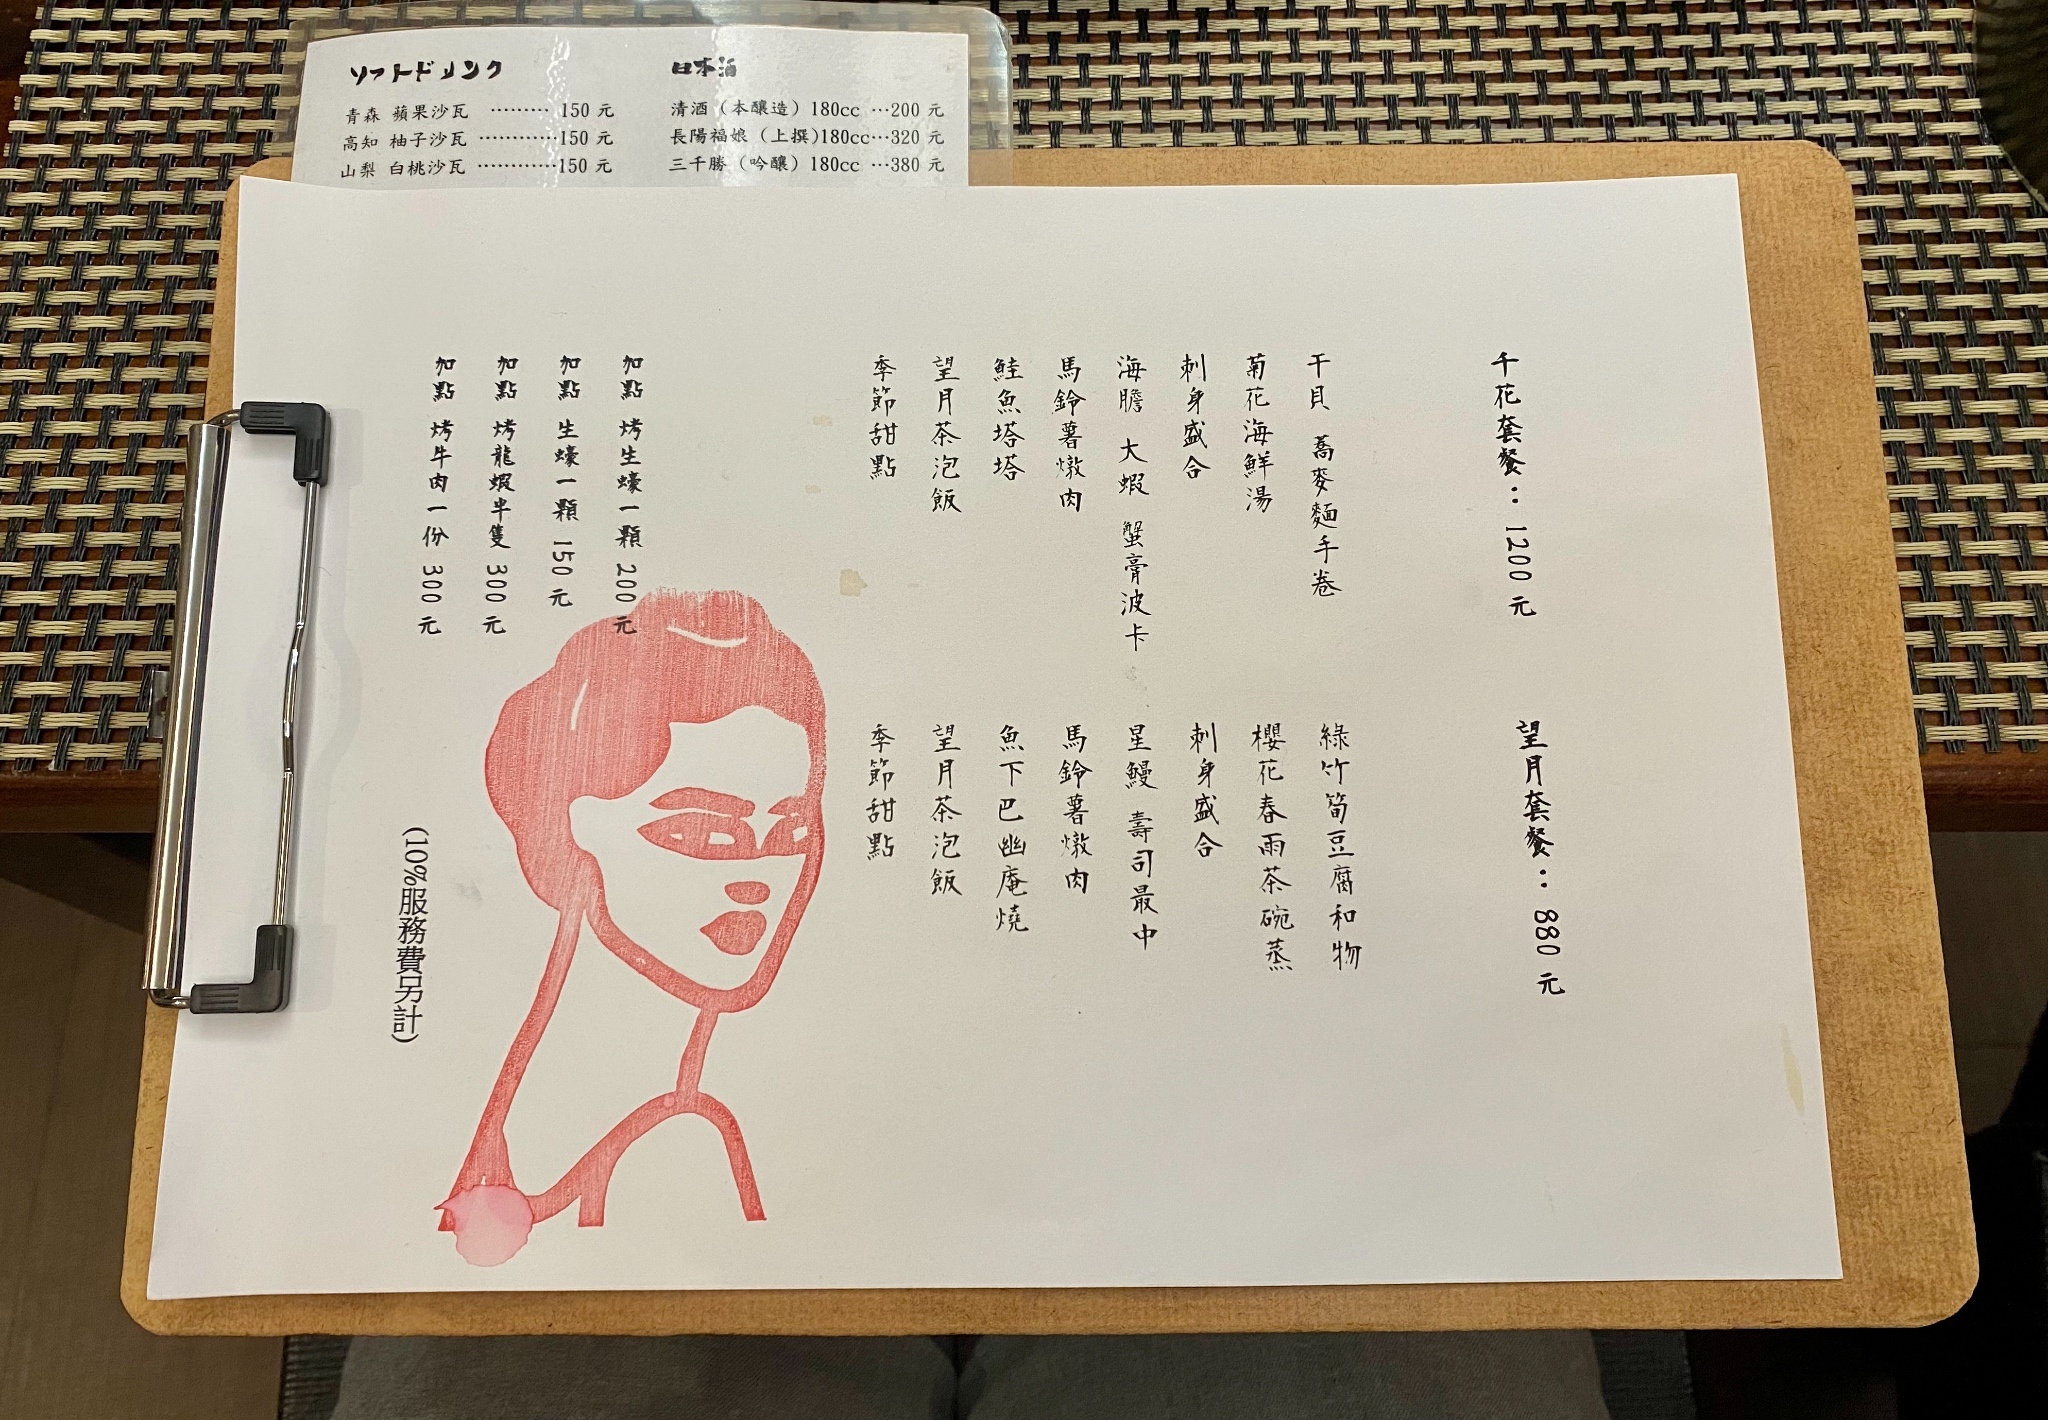 ソフトドリンク
青森 蘋果沙瓦 ………150 元
高知 柚子沙瓦 …………150 元
山梨 白桃沙瓦 …………150 元
日本酒
清酒（本釀造）180cc …200 元
長陽福娘（上撰）180cc…320 元
三千勝（吟釀）180cc …380 元
千花套餐：1200 元
干貝 蕎麥麵手卷
菊花海鮮湯
刺身盛合
海膽 大蝦 蟹膏波卡
馬鈴薯燉肉
鮭魚塔塔
望月茶泡飯
季節甜點
望月套餐：880 元
綠竹筍豆腐和物
櫻花春雨茶碗蒸
刺身盛合
星鰻 壽司最中
馬鈴薯燉肉
魚下巴幽庵燒
望月茶泡飯
季節甜點
加點 烤生蠔一顆 200 元
加點 生蠔一顆 150 元
加點 烤龍蝦半隻 300 元
加點 烤牛肉一份 300 元
(10%服務費另計)